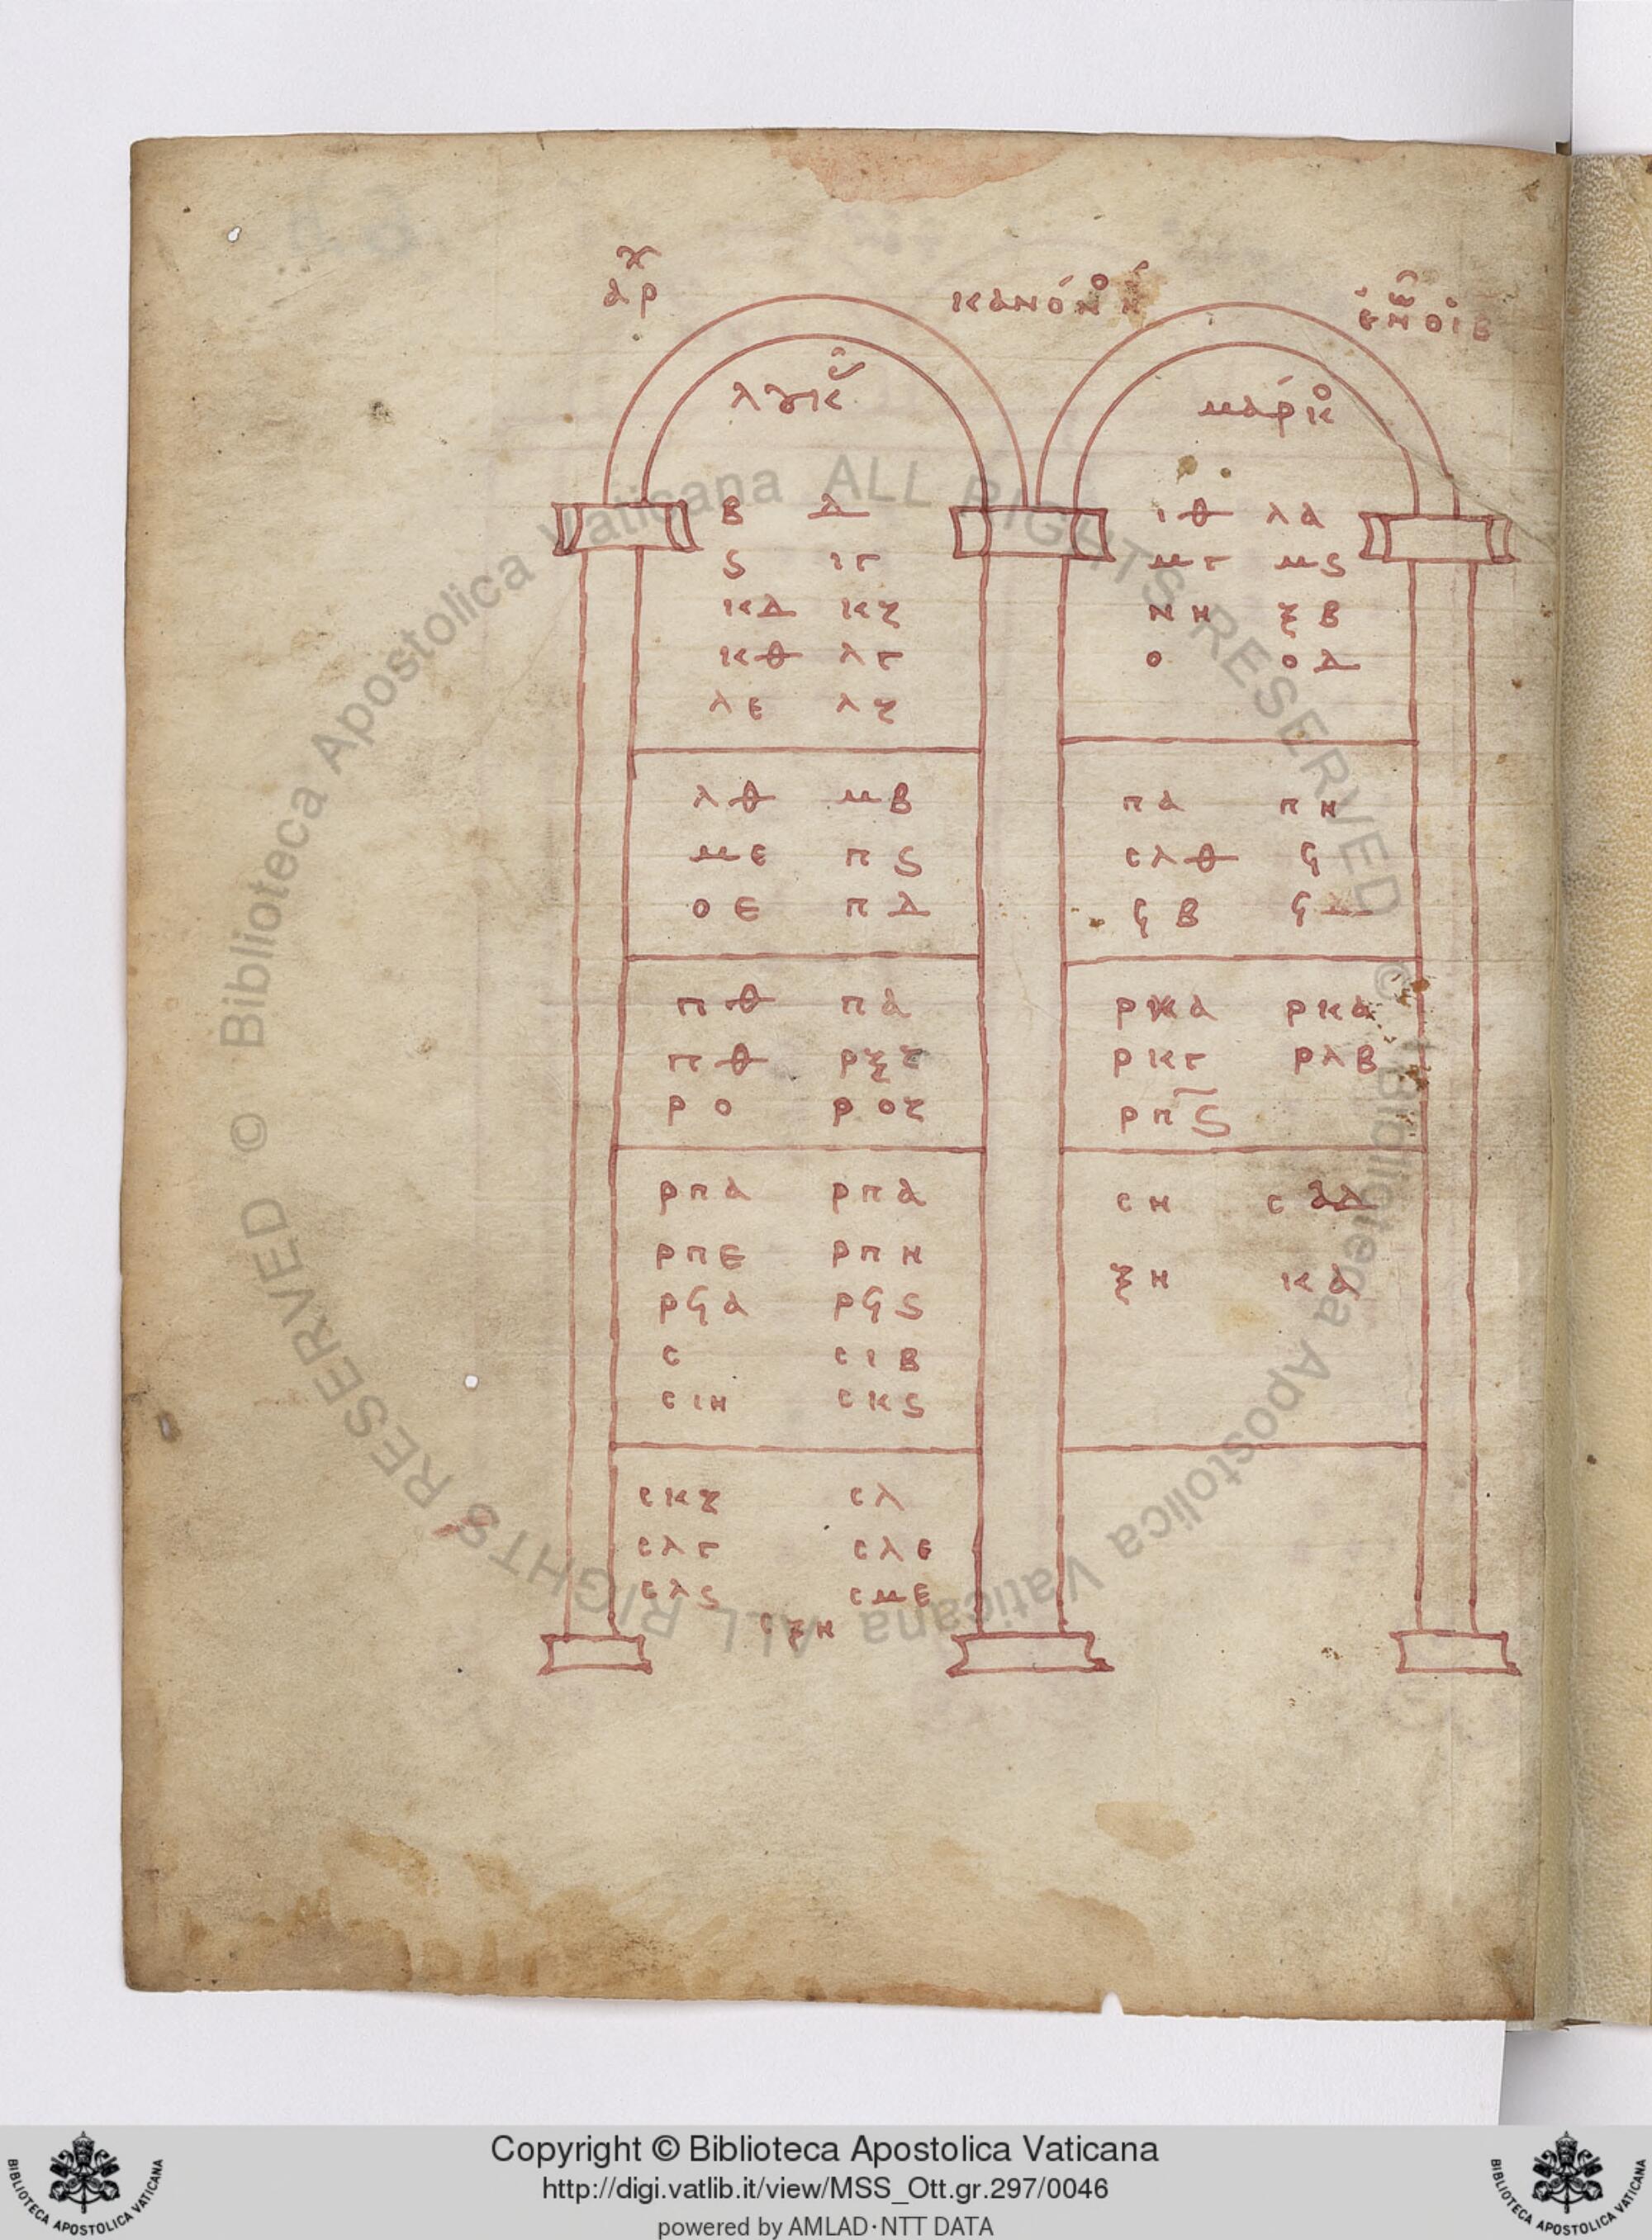 ἀρχ κανόνο η ἐν ὧ οἱ β
λουκᾶ μάρκο
β δ ιθ λα
ϛ ιγ μγ μϛ
κδ κζ νη ξβ
κθ λγ ο οδ
λε λζ
λθ μβ πα πη
με πϛ ϲλθ ϟ
οε πδ ϟβ ϟδ
πθ πα ρκα ρκα
πθ ρκγ ρλβ
ρο ροζ ρπϛ
ρπα ρπα ϲη
ρπε ρπη
ρϟα ρϟϛ ξη κα
ϲ ϲιβ
ϲιη ϲκϛ
ϲκζ ϲλ
ϲλγ ϲλε
ϲλϛ ϲμε
ϲξη
© Biblioteca Apostolica Vaticana ALL RIGHTS RESERVED © Biblioteca Apostolica Vaticana ALL RIGHTS RESERVED
Copyright © Biblioteca Apostolica Vaticana
http://digi.vatlib.it/view/MSS_Ott.gr.297/0046
powered by AMLAD·NTT DATA
BIBLIOTECA APOSTOLICA VATICANA
BIBLIOTECA APOSTOLICA VATICANA